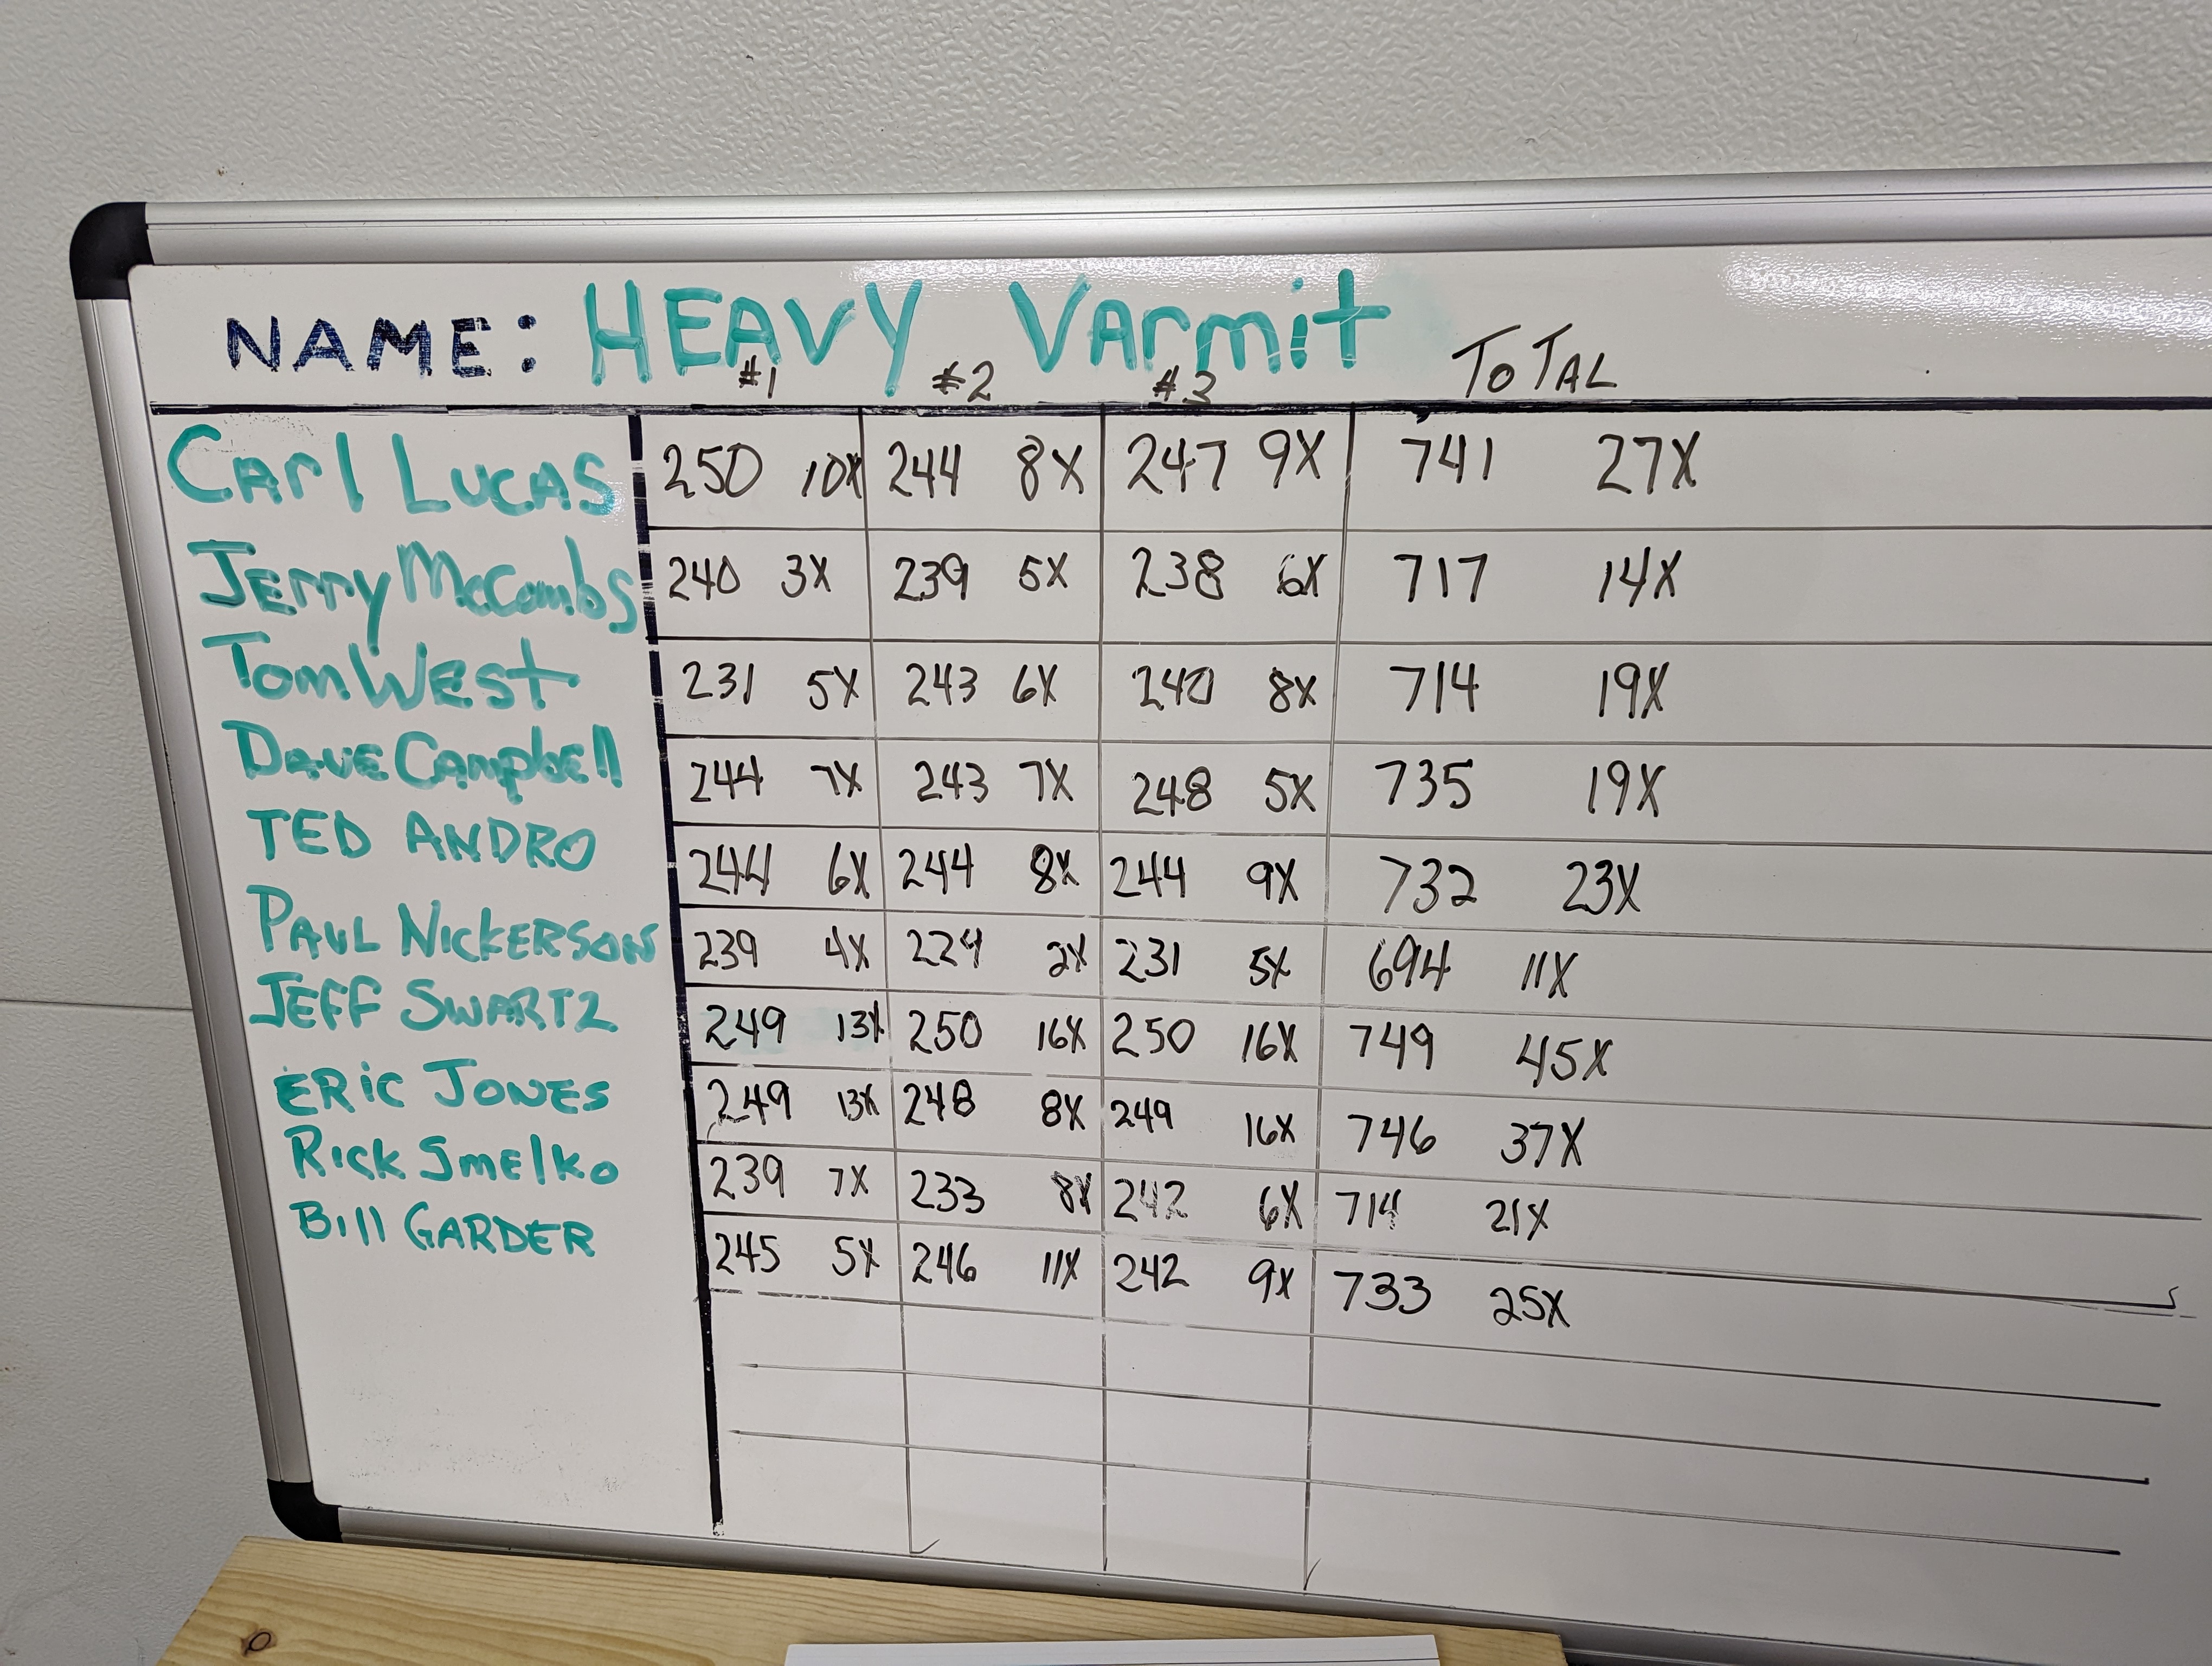 NAME: HEAVY Varmit
#1 #2 #3 TOTAL
Carl Lucas 250 10X 244 8X 247 9X 741 27X
Jerry McCombs 240 3X 239 5X 238 6X 717 14X
Tom West 231 5X 243 6X 240 8X 714 19X
Dave Campbell 244 7X 243 7X 248 5X 735 19X
TED ANDRO 244 6X 244 8X 244 9X 732 23X
PAUL NICKERSON 239 4X 224 2X 231 5X 694 11X
JEFF SWARTZ 249 13X 250 16X 250 16X 749 45X
ERIC JONES 249 13X 248 8X 249 16X 746 37X
Rick Smelko 239 7X 233 8X 242 6X 714 21X
Bill GARDER 245 5X 246 11X 242 9X 733 25X